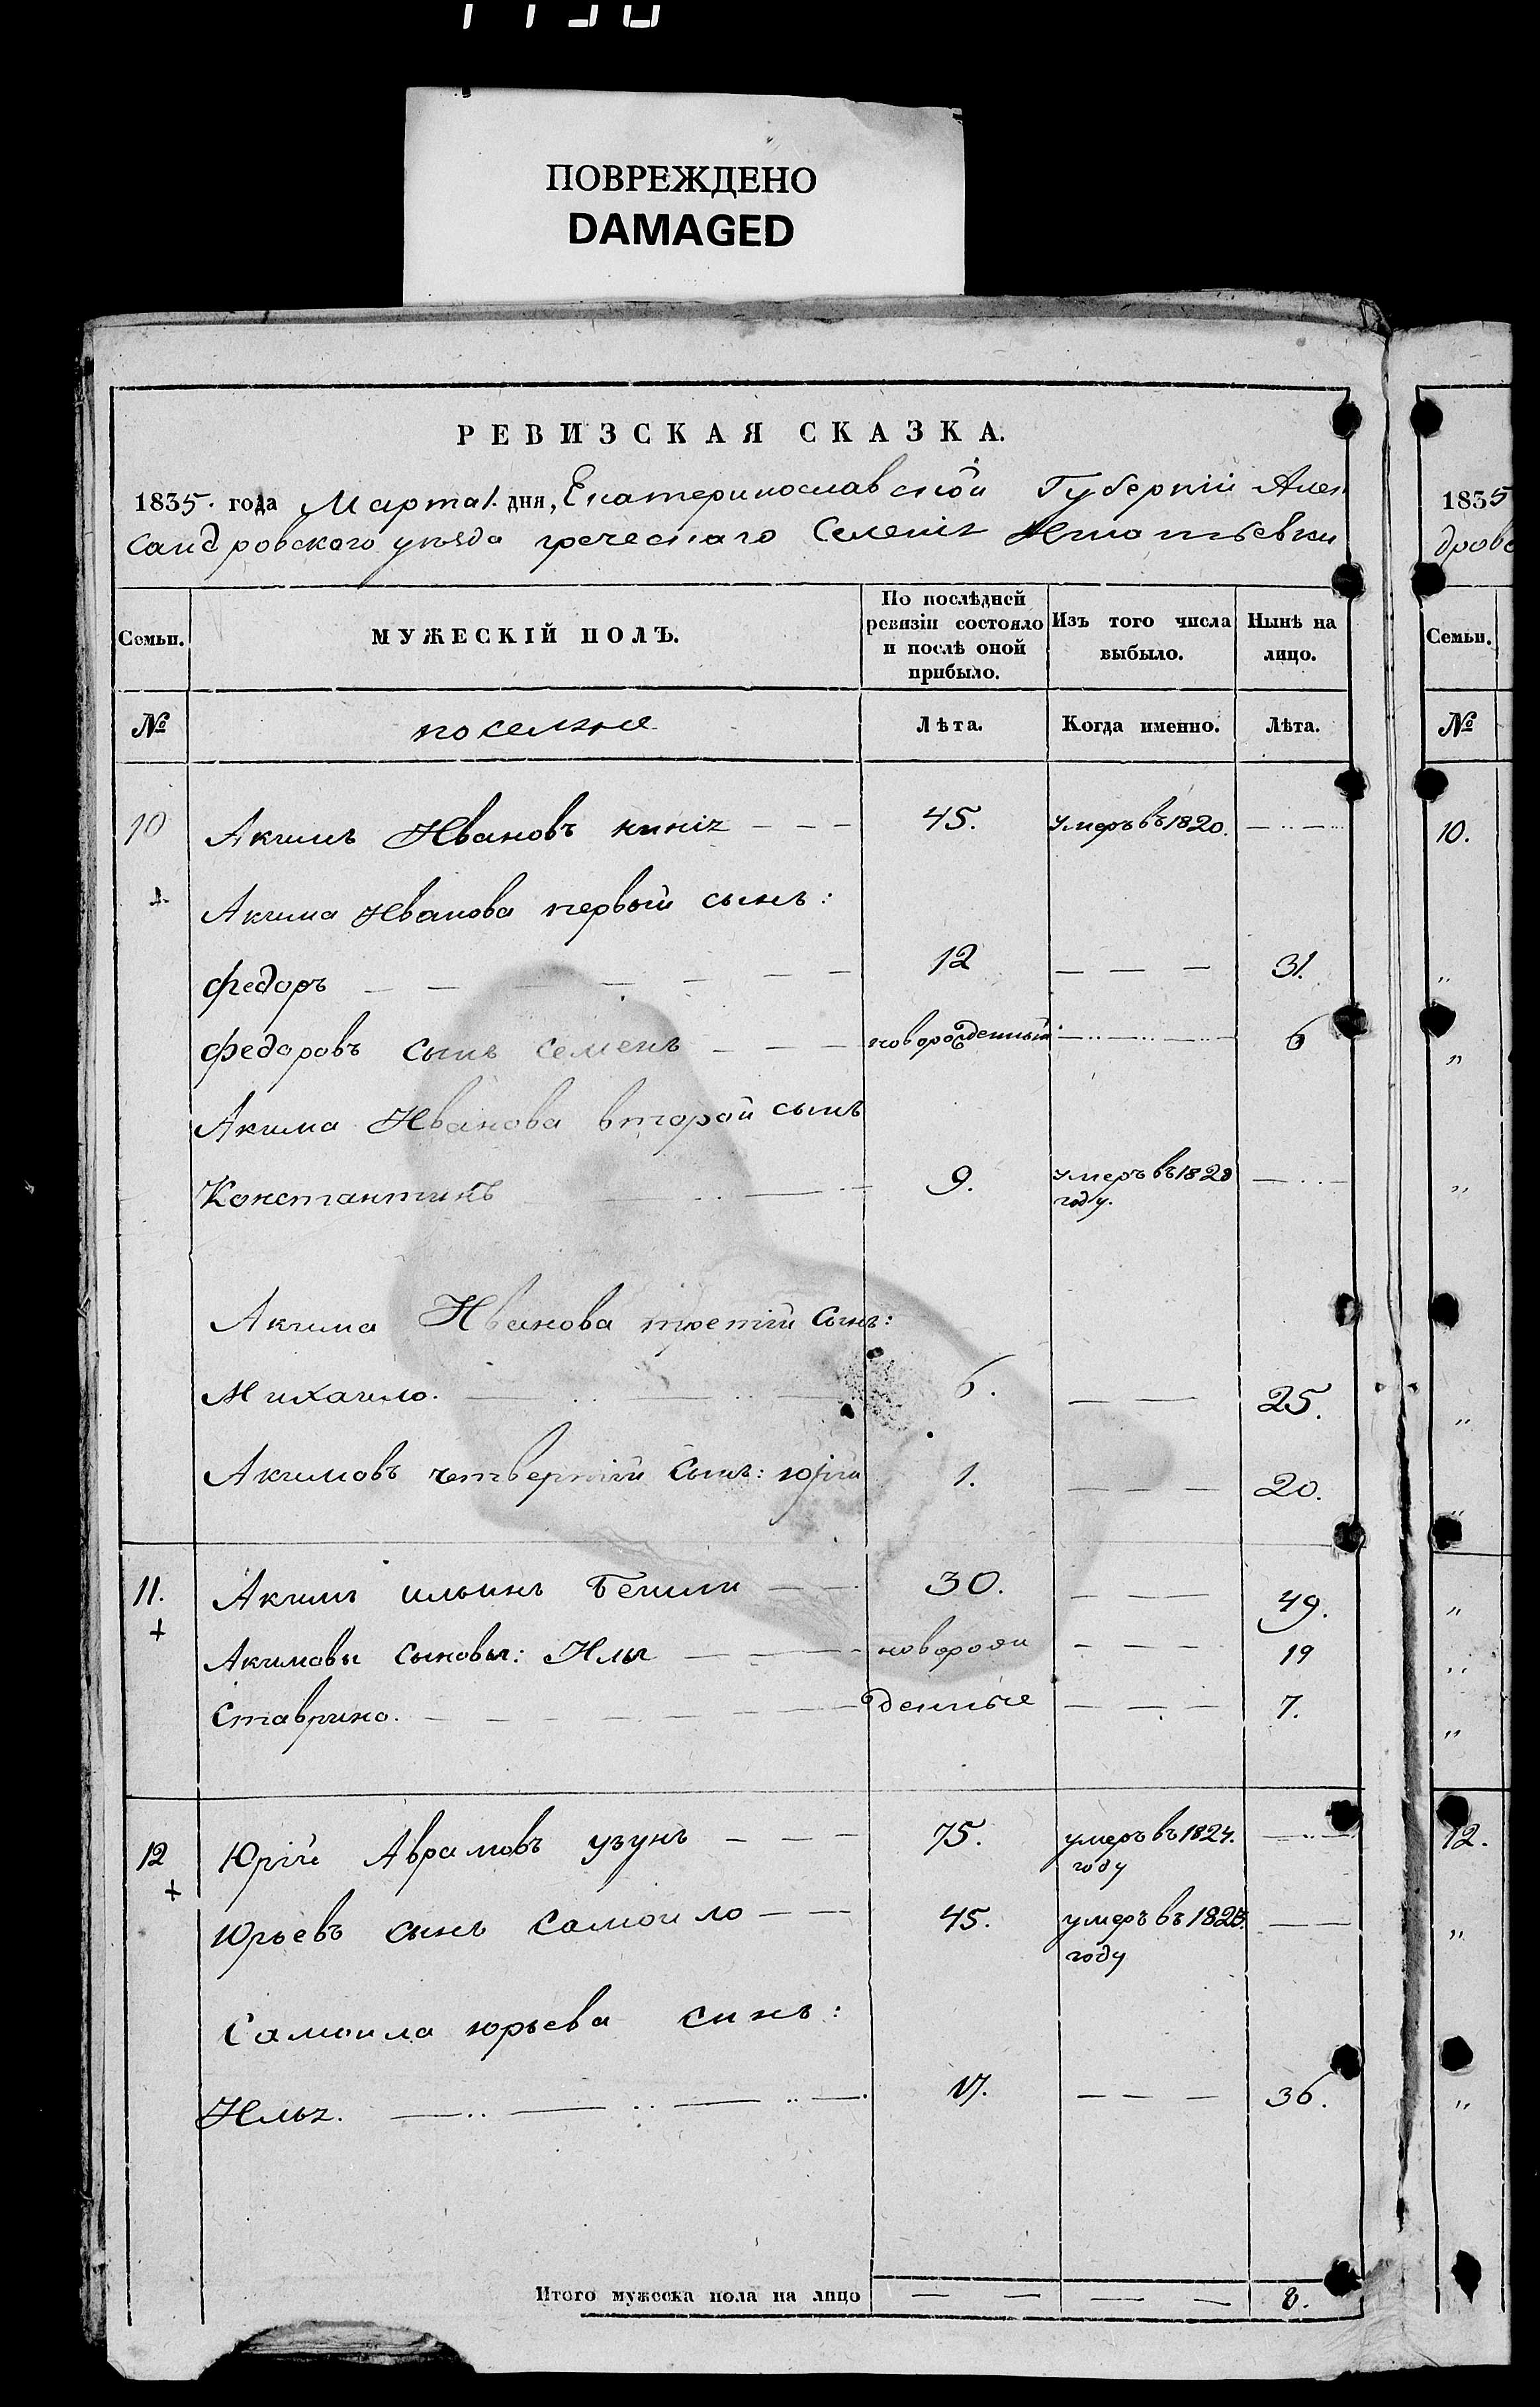 ПОВРЕЖДЕНО
DAMAGED
РЕВИЗСКАЯ СКАЗКА.
1835. года Марта 1. дня, Екатеринославской Губерніи Алек
сандровского уѣзда греческаго Селенія Игнатьевки
1835
дрово
Семьи. МУЖЕСКІЙ ПОЛЪ. По послѣдней ревизіи состояло и послѣ оной прибыло. Изъ того числа выбыло. Нынѣ на лицо. Семьи.
№ поселяне Лѣта. Когда именно. Лѣта. №
10 Акимъ Ивановъ – – – 45. умеръ въ 1820. 10.
Акима Иванова первый сынъ:
Федоръ 12 – – – 31. „
Федоровъ сынъ Семенъ – – – новорожденный 6 „
Акима Иванова второй сынъ
Константинъ 9. умеръ въ 1820 „
году.
Акима Иванова третій сынъ:
Михайло. 6. – – 25. „
Акимовъ четвертій сынъ: Юрій 1. – – – 20. „
11. Акимъ Ильинъ – – 30. – – 49. „
+ Акимовы сыновья: Илья – – – новорож – – – 19 „
Ставрино. – – – денные – – – 7. „
12 Юрій Аврамовъ узунъ – – – 75. умеръ въ 1824. 12.
+ году
Юрьевъ сынъ Самойло – – – 45. умеръ въ – – „
году
Самойла Юрьева синъ:
Илья. 17. – – – 36. „
Итого мужеска пола на лицо – – – – 8.